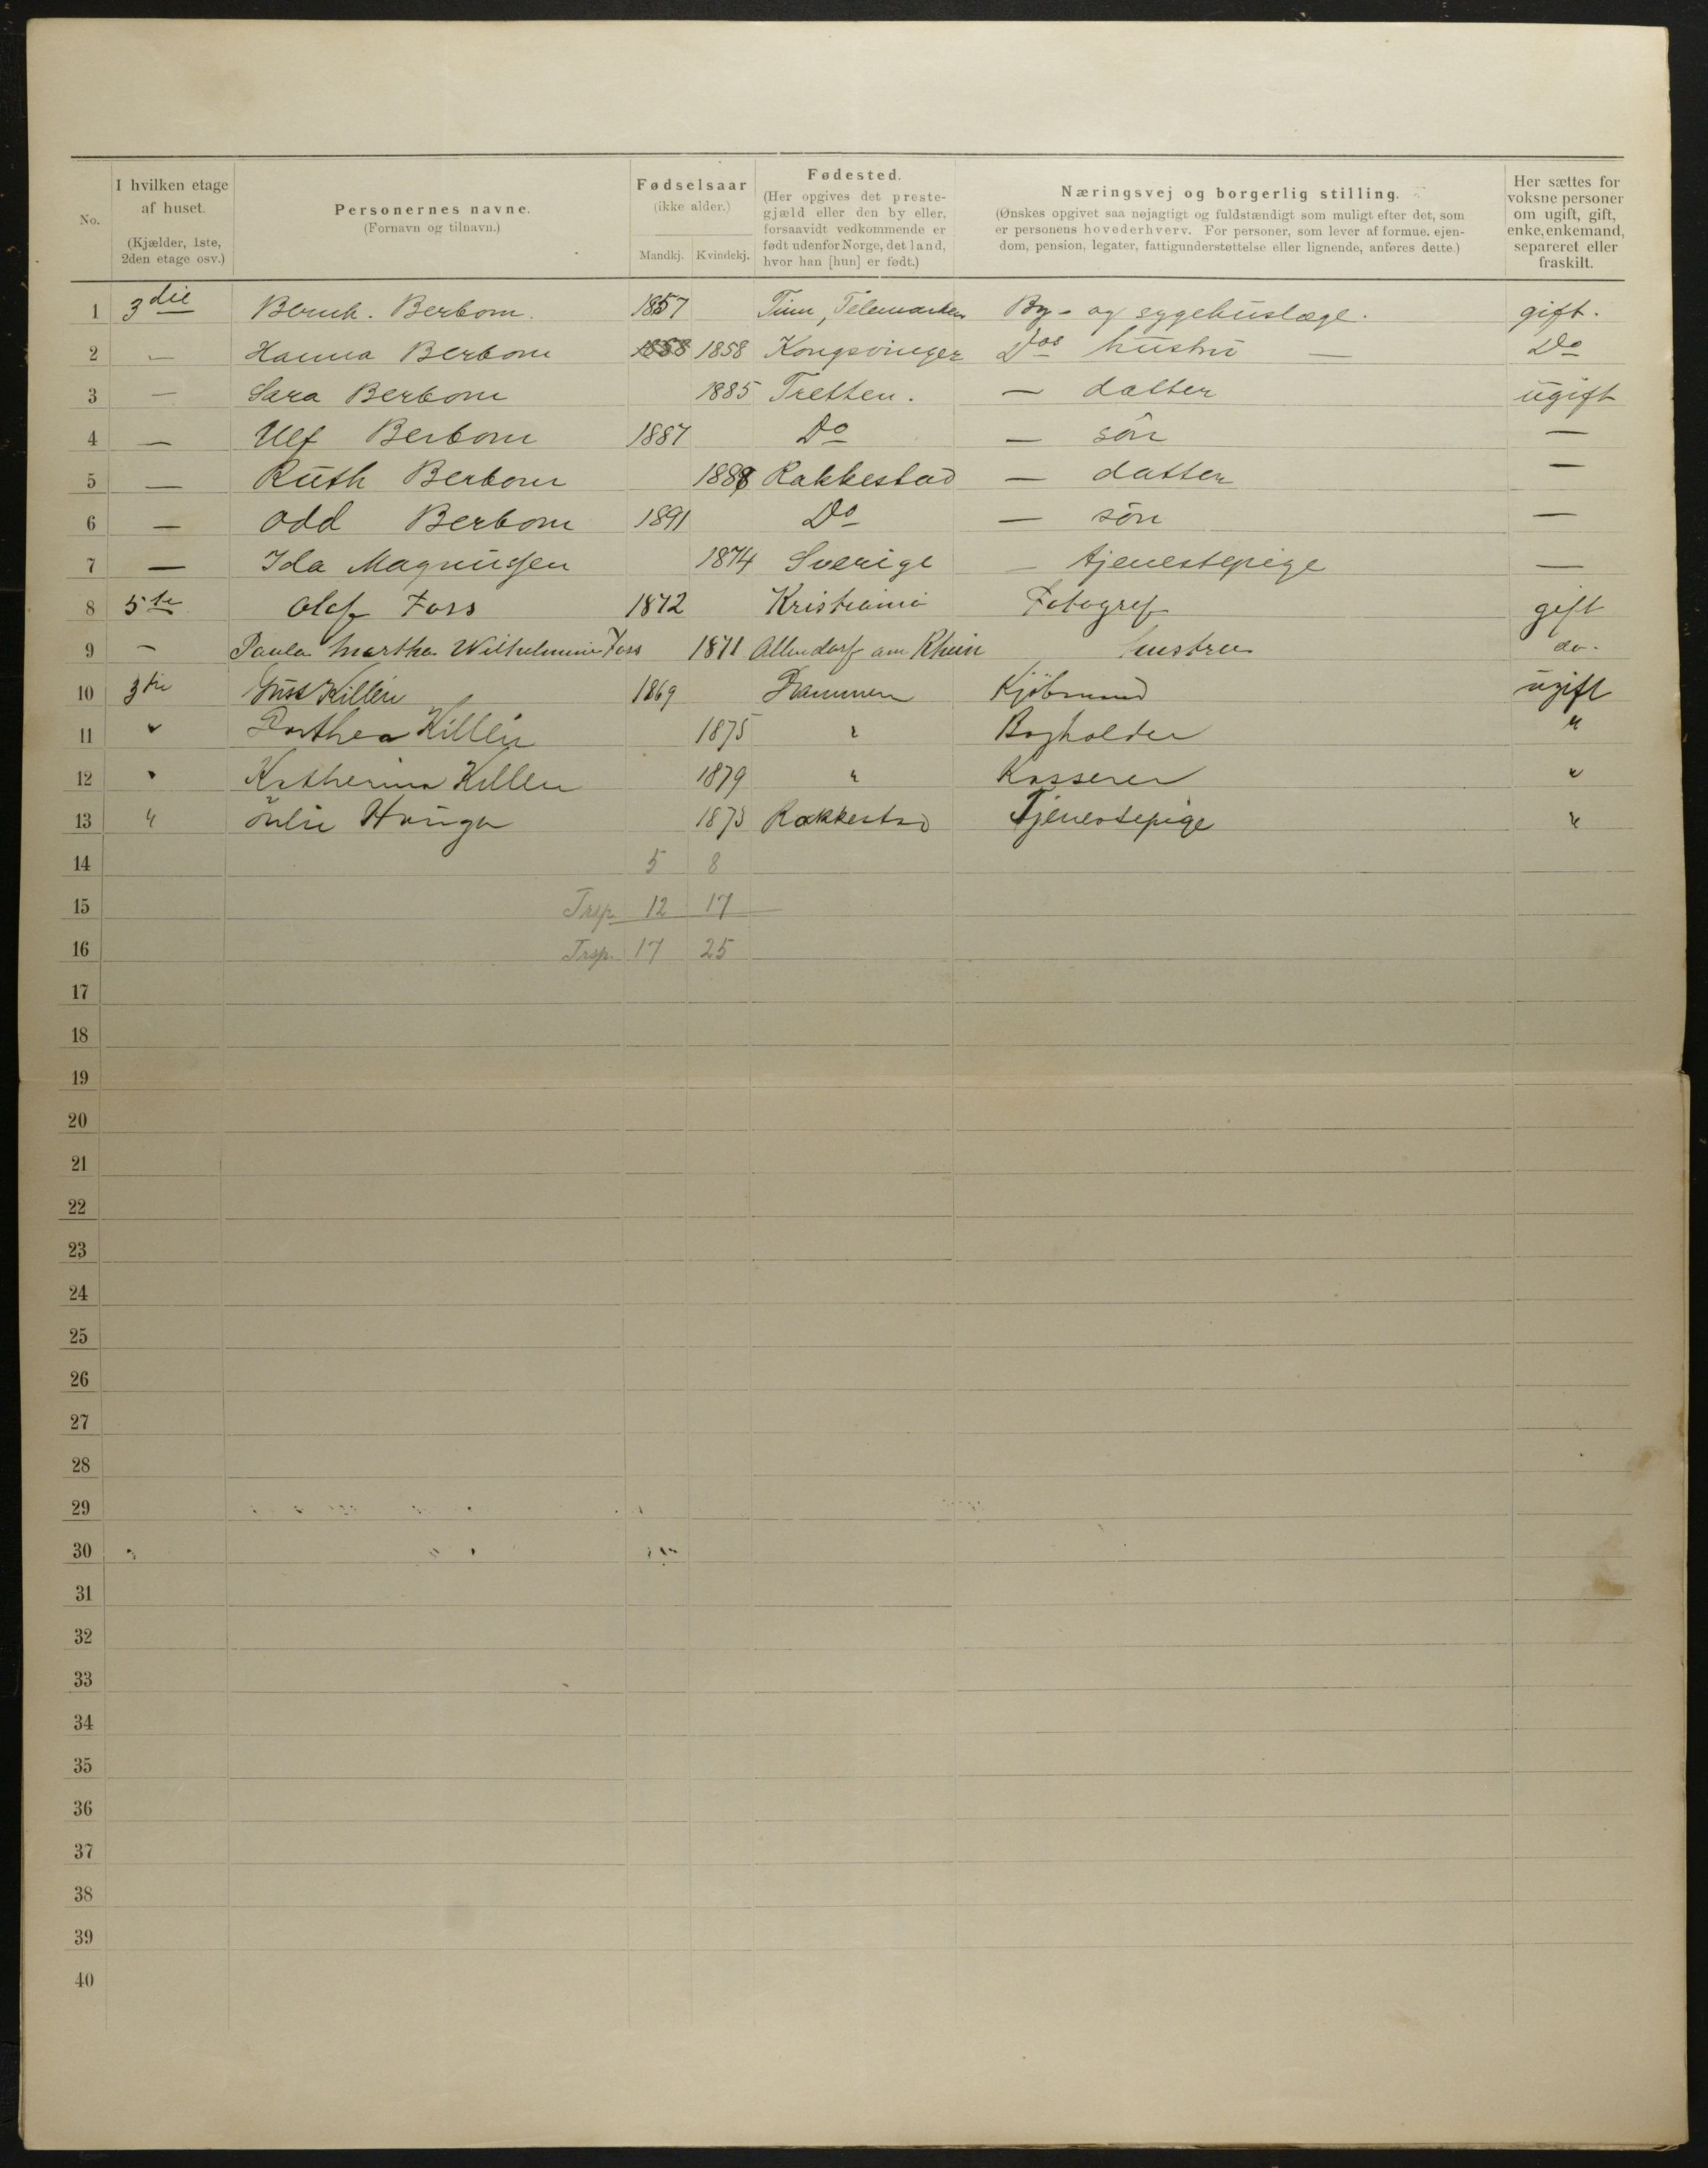 No.
I hvilken etage af huset.
(Kjælder, 1ste, 2den etage osv.)
Personernes navne.
(Fornavn og tilnavn.)
Fødselsaar
(ikke alder.)
Mandkj. Kvindekj.
Fødested.
(Her opgives det preste-
gjæld eller den by eller,
forsaavidt vedkommende er
født udenfor Norge, det land,
hvor han [hun] er født.)
Næringsvej og borgerlig stilling.
(Ønskes opgivet saa nøjagtigt og fuldstændigt som muligt efter det, som
er personens hovederhverv. For personer, som lever af formue, ejen-
dom, pension, legater, fattigunderstøttelse eller lignende, anføres dette.)
Her sættes for
voksne personer
om ugift, gift,
enke, enkemand,
separeret eller
fraskilt.
1 3die Bernh. Berbom. 1857 Tinn, Telemarken By- og sygehuslæge. gift.
2 — Hanna Berbom 1858 1858 Kongsvinger Dos hustru — Do
3 — Sara Berbom 1885 Tretten. — datter ugift
4 — Ulf Berbom 1887 Do — sön —
5 — Ruth Berbom 1888 Rakkestad — datter —
6 — Odd Berbom 1891 Do — sön —
7 — Ida Magnussen 1874 Sverige — tjenestepige —
8 5te Olaf Foss 1872 Kristiania Fotograf gift
9 — Paula Martha Wilhelmine Foss 1871 am Rhein hustru do.
10 3die Gust Killén 1869 Drammen Kjöbmand ugift
11 " Dorthea Killén 1875 " Bogholder "
12 " Katherina Killen 1879 " Kasserer "
13 " Julie 1873 Rakkestad Tjenestepige "
14 5 8
15 Trsp. 12 17
16 Trsp. 17 25
17
18
19
20
21
22
23
24
25
26
27
28
29
30
31
32
33
34
35
36
37
38
39
40